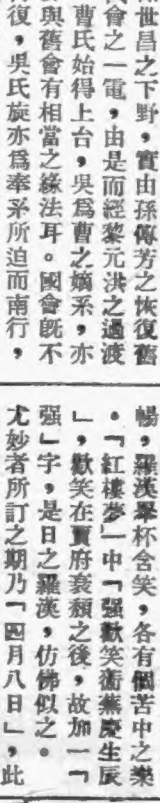 世昌之下野，實由孫傳芳之恢復舊
會之一電，由是而經黎元洪之過渡
曹氏始得上台，吳爲曹之嫡系，亦
與舊會有相當之緣法耳。國會旣不
復，吳氏旋亦爲奉系所迫而南行，
暢，羅漢舉杯含笑，各有個苦中之樂
。「紅樓夢」中「强歡笑蘅蕪慶生辰
」，歡笑在賈府衰頹之後，故加一「
强」字，是日之羅漢，仿佛似之。
尤妙者所訂之期乃「四月八日」，此